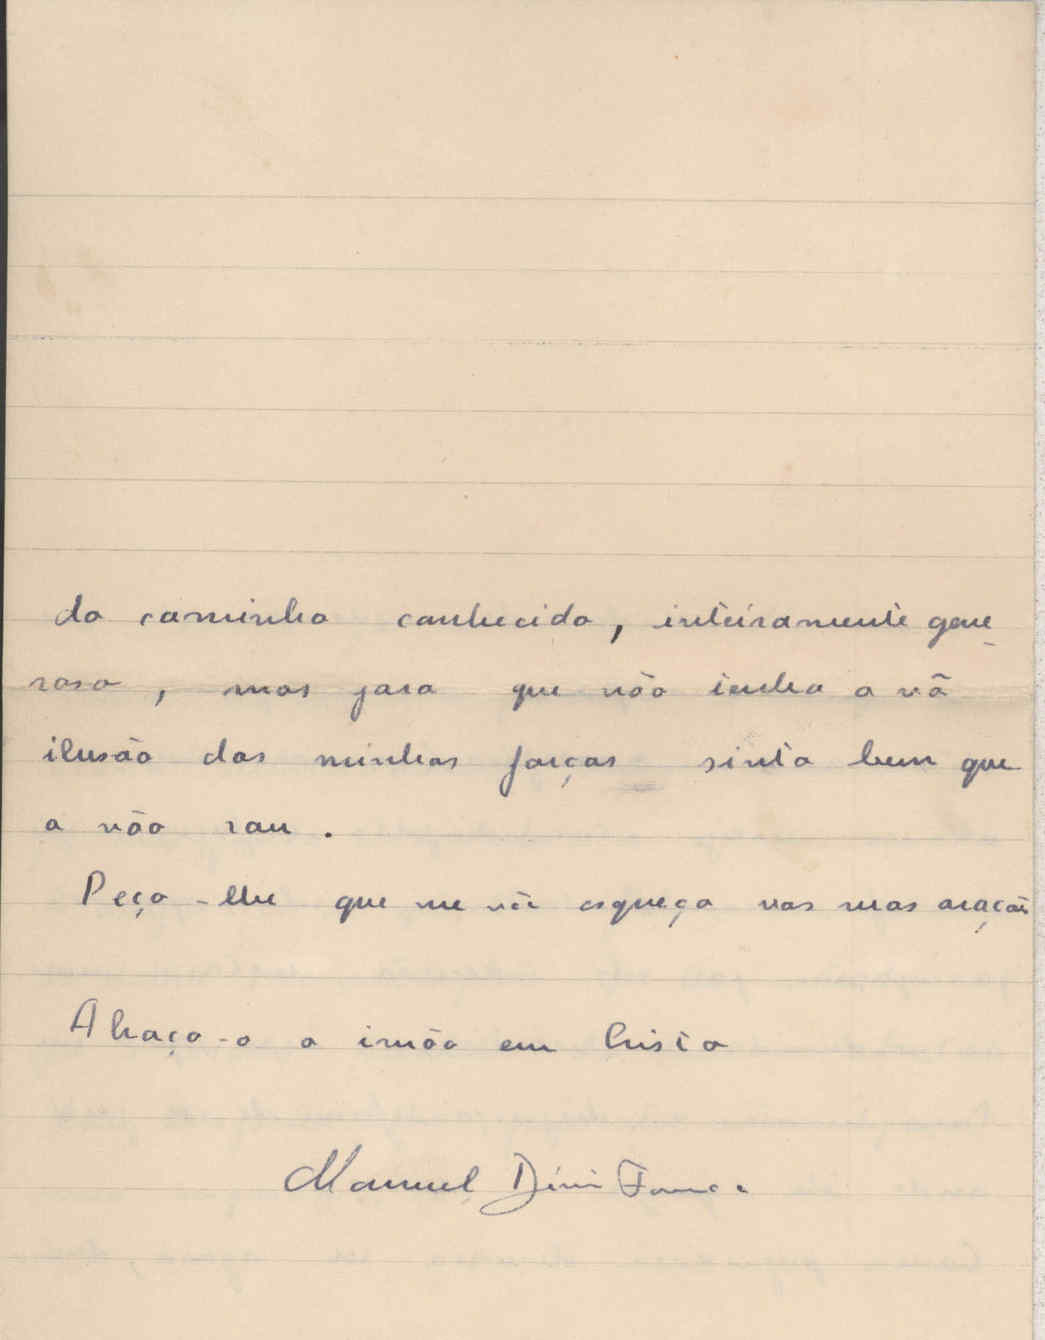 do caminho conhecido, inteiramente gene
roso, mas para que não tenha a vã
ilusão das minhas forças sinto bem que
o não sou.
Peço-lhe que me não esqueça nas suas orações
Abraço-o o irmão em Cristo
Manuel Dinis